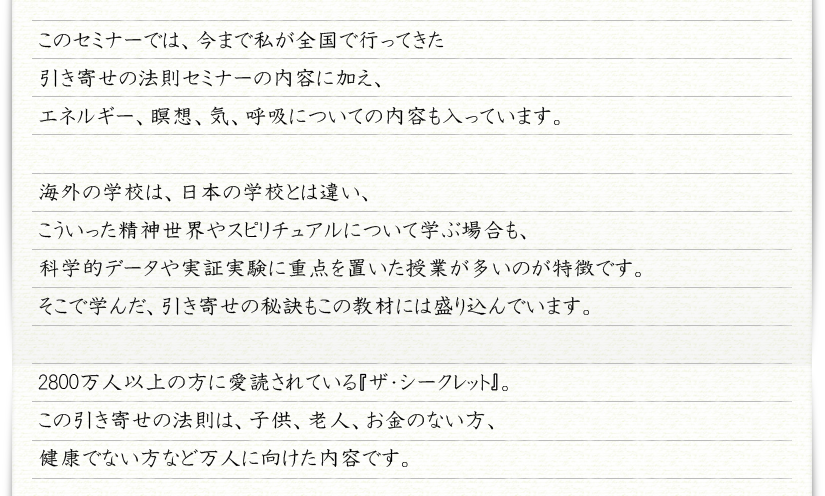 このセミナーでは、今まで私が全国で行ってきた
引き寄せの法則セミナーの内容に加え、
エネルギー、瞑想、気、呼吸についての内容も入っています。
海外の学校は、日本の学校とは違い、
こういった精神世界やスピリチュアルについて学ぶ場合も、
科学的データや実証実験に重点を置いた授業が多いのが特徴です。
そこで学んだ、引き寄せの秘訣もこの教材には盛り込んでいます。
2800万人以上の方に愛読されている『ザ・シークレット』。
この引き寄せの法則は、子供、老人、お金のない方、
健康でない方など万人に向けた内容です。